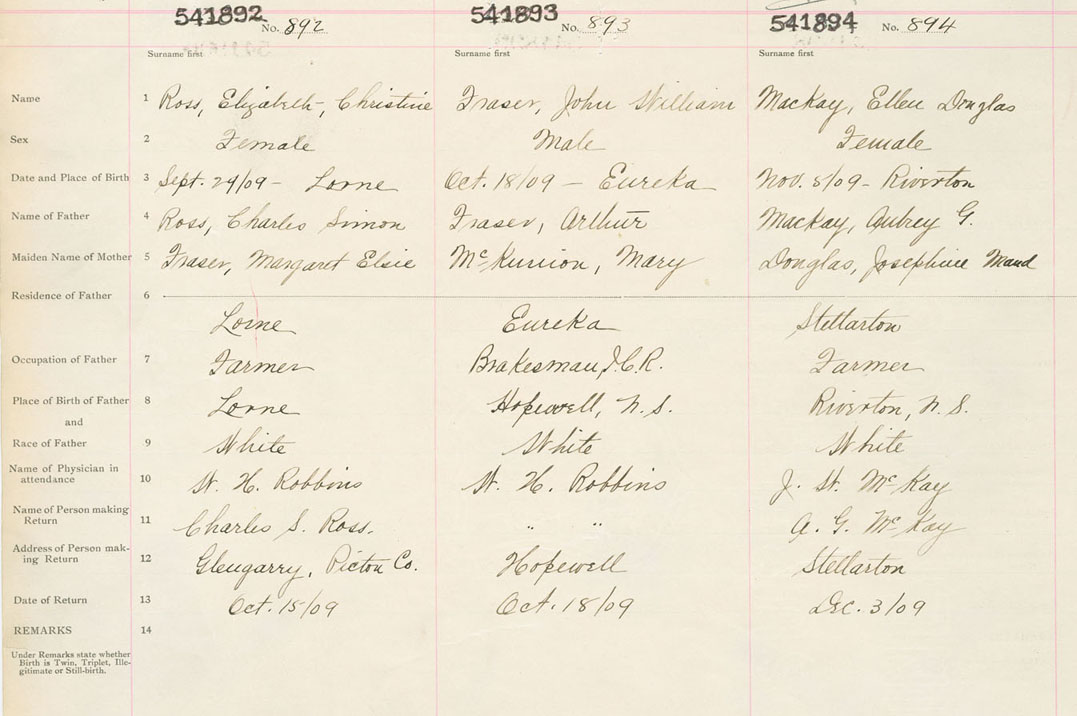 541892 No. 892 541893 No. 893 541894 No. 894
Surname first Surname first Surname first
Name 1 Ross, Elizabeth Christine Fraser, John William MacKay, Ellen Douglas
Sex 2 Female Male Female
Date and Place of Birth 3 Sept. 29/09 - Lorne Oct. 18/09 - Eureka Nov. 5/09 - Riverton
Name of Father 4 Ross, Charles Simon Fraser, Arthur MacKay, Aubrey G.
Maiden Name of Mother 5 Fraser, Margaret Elsie Mary Douglas, Josephine Maud
Residence of Father 6
Lorne Eureka Stellarton
Occupation of Father 7 Farmer Brakesman, I.C.R. Farmer
Place of Birth of Father 8 Lorne Hopewell, N.S. Riverton, N.S.
and
Race of Father 9 White White White
Name of Physician in
attendance 10 W. H. Robbins W. H. Robbins J. W. McKay
Name of Person making
Return 11 Charles S. Ross. " " A. G. McKay
Address of Person mak-
ing Return 12 Glengarry, Pictou Co. Hopewell Stellarton
Date of Return 13 Oct. 15/09 Oct. 18/09 Dec. 3/09
REMARKS 14
Under Remarks state whether
Birth is Twin, Triplet, Ille-
gitimate or Still-birth.